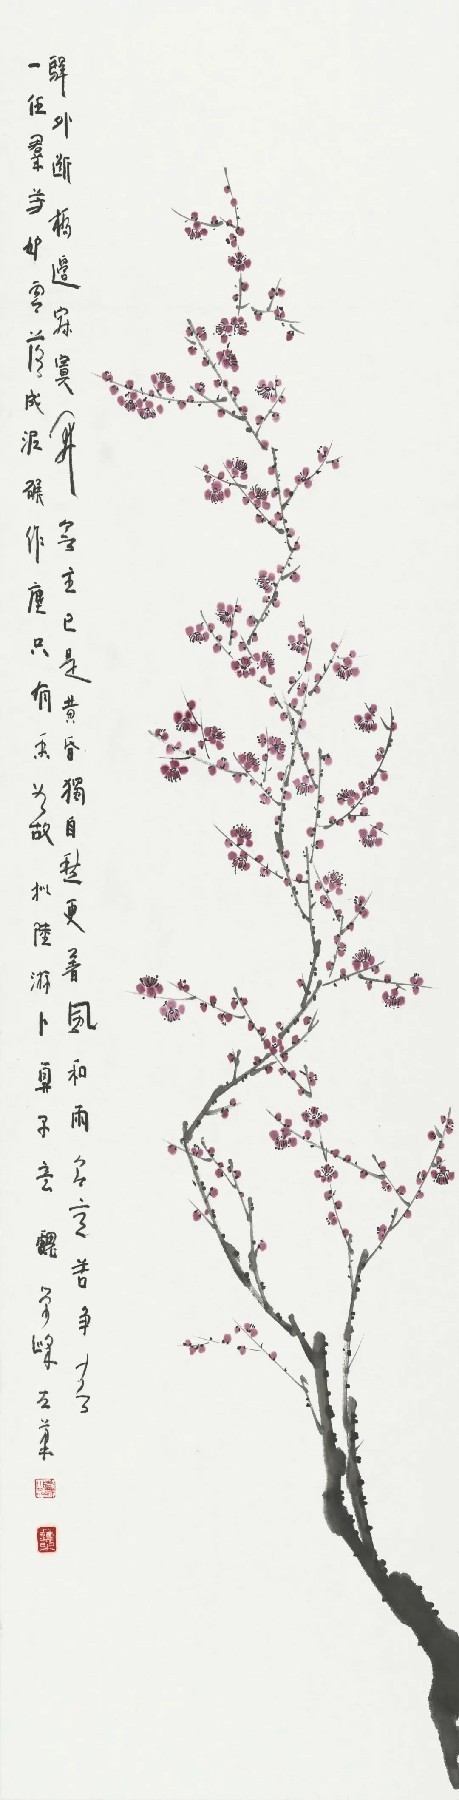 驛外斷橋邊寂寞開無主已是黃昏獨自愁更著風和雨無意苦爭春
一任羣芳妒零落成泥碾作塵只有香如故 拟陸游卜算子意